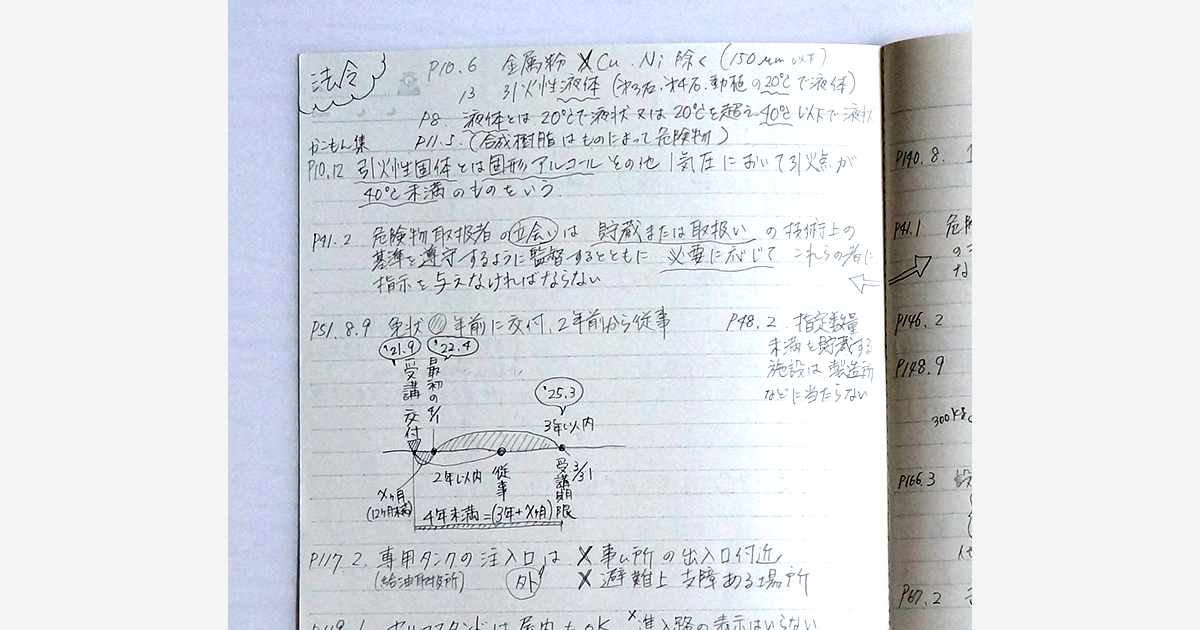 法令
P10.6 金属粉 X Cu.Ni 除く (150μm以下)
13 引火性液体 (才3石.才4石.動植の20℃で液体)
P8. 液体とは20℃で液状又は20℃を超え40℃以下で液状
かこもん集 P11.5.(合成樹脂はものによって危険物)
P10.12 引火性固体とは固形アルコールその他1気圧において引火点が
40℃未満のものをいう.
P41.2 危険物取扱者の立会いは 貯蔵または取扱い の技術上の
基準を遵守するように監督するとともに 必要に応じて これらの者に
指示を与えなければならない
P51.8.9 免状 年前に交付、2年前から従事
'21.9
'22.4
受講
交付
最初の4/1
'25.3
3年以内
2年以内
従事
受講期限
3/31
Xヶ月
(12ヶ月未満)
4年未満=(3年+Xヶ月)
P48.2. 指定数量
未満を貯蔵する
施設は製造所
などに当たらない
P117.2. 専用タンクの注入口は X 事ム所の出入口付近
(給油取扱所) 外 X 避難上 支障ある場所
セルフスタンドは屋内もOK X 進入路の表示はいらない
P140.8.
P41.1 危
の
な
P146.2
P148.9
300kg
P166.3 設
P67.2